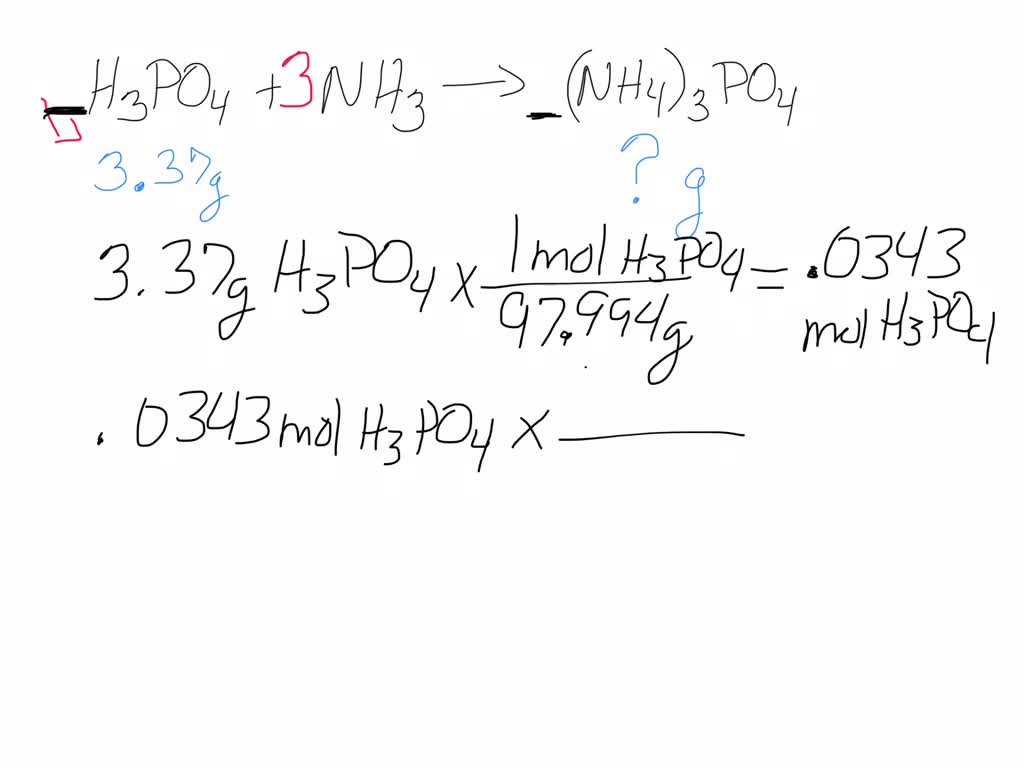 H3PO4 + 3NH3 → (NH4)3PO4
3.37g ? g
3.37g H3PO4 x 1 mol H3PO4 / 97.994g = .0343 mol H3PO4
.0343 mol H3PO4 x